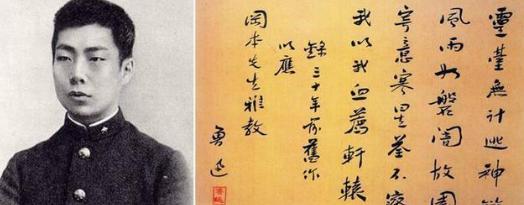 靈臺無計逃神
風雨如磐闇故園
寄意寒星荃不察
我以我血薦軒轅
錄三十年前舊作
以應
岡本先生雅教
魯迅